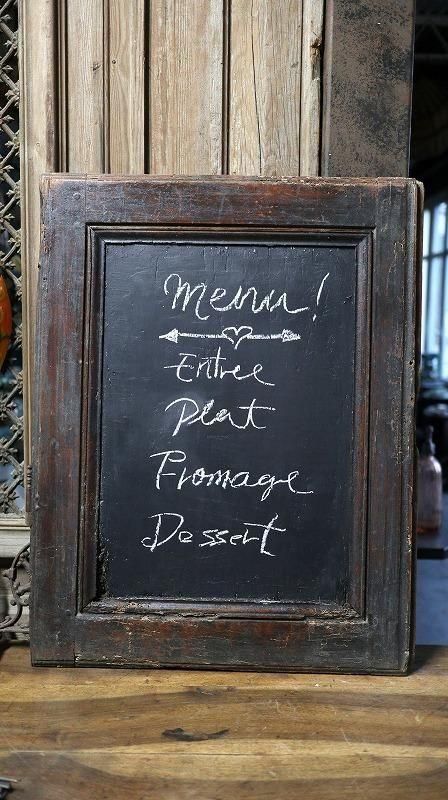 Menu!
Entree
Plat
Fromage
Dessert